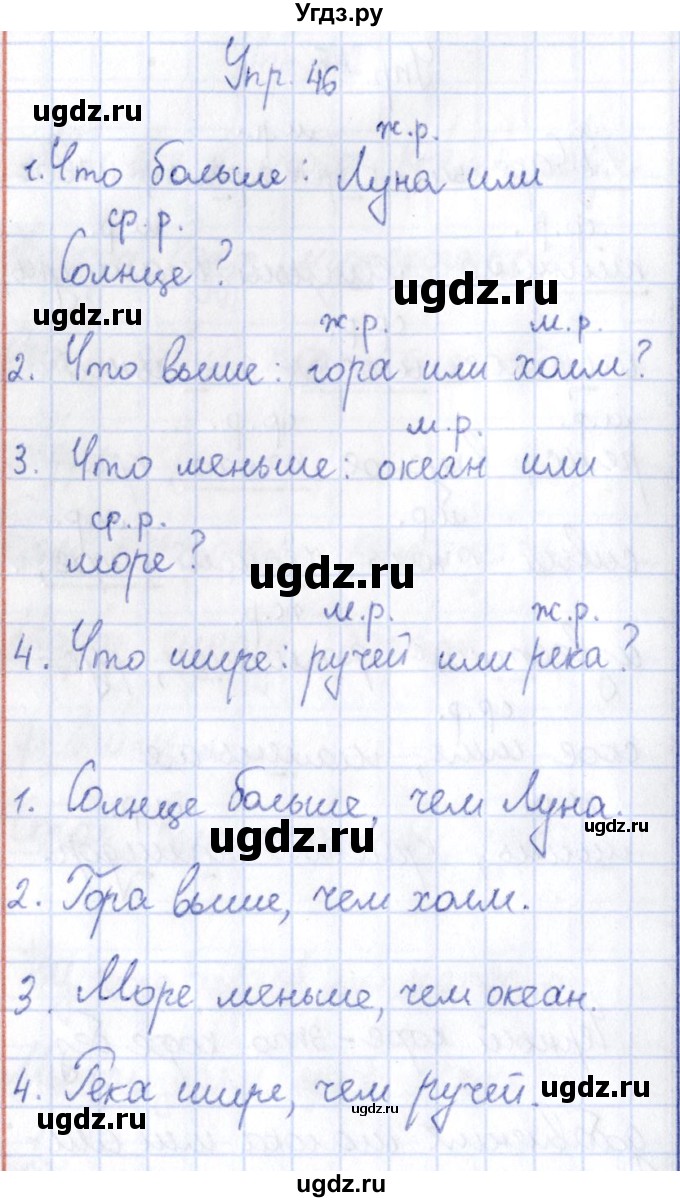 Угдз.ру
Упр. 46
ugdz.ru
ж.р.
1. Что больше: Луна или
ср.р.
Солнце?
ugdz.ru
ugdz.ru
ж.р. м.р.
2. Что выше: гора или холм?
м.р.
3. Что меньше: океан или
ср.р.
море?
ugdz.ru
м.р. ж.р.
4. Что шире: ручей или река?
1. Солнце больше, чем Луна.
ugdz.ru
ugdz.ru
2. Гора выше, чем холм.
3. Море меньше, чем океан.
4. Река шире, чем ручей.
ugdz.ru
ugdz.ru
ugdz.ru
ugdz.ru